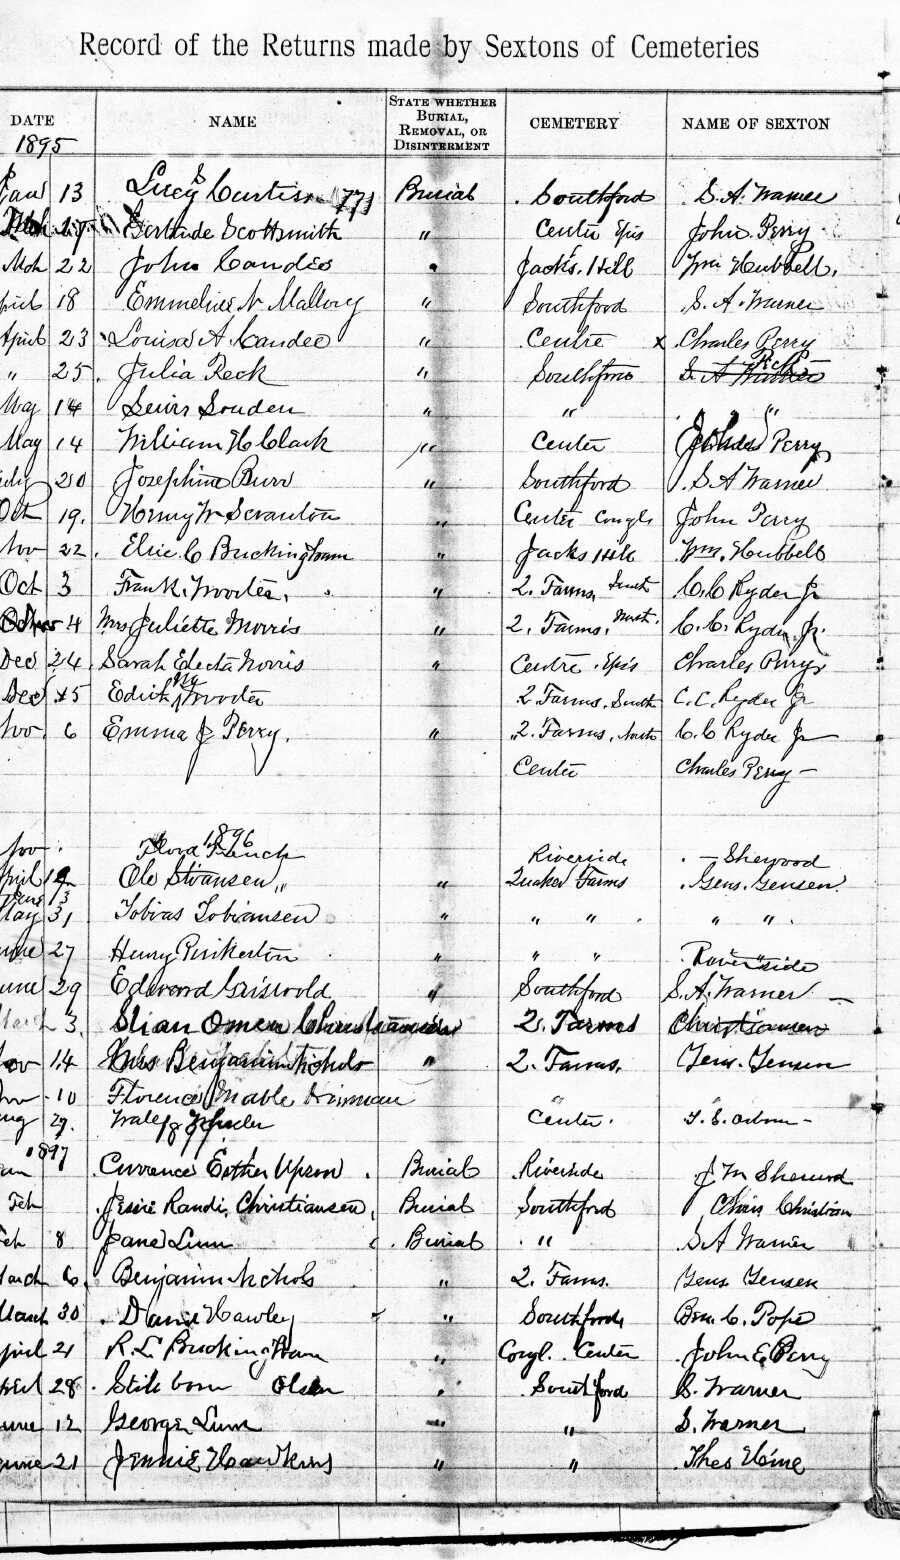 Record of the Returns made by Sextons of Cemeteries
DATE NAME STATE WHETHER BURIAL, REMOVAL, OR DISINTERMENT CEMETERY NAME OF SEXTON
1895
Jan 13 Lucy S Curtiss Burial Southford S. A. Warner
27 Gertrude Scottsmith " Center Epis John Perry
Mch 22 John Candee " Jacks Hill Wm Hubbell.
pril 18 Emmeline N Mallory " Southford S. A. Warner
April 23 Louisa A. Candee " Centre x Charles Perry
" 25. Julia Peck " Southford S. A Warner
May 14 Souden " " " "
May 14 William H Clark " Center Perry
uly 20 Josephine Burr " Southford S. A Warner
Oct 19. Henry W Scranton " Center Congl John Perry
Nov 22. Elsie C Buckingham " Jacks Hill Wm. Hubbell
Oct 3 Frank. Wooster. " 2. Farms. South C. C Ryder Jr
4 Mrs Juliette Morris " 2. Farms. North. C. C. Ryder Jr.
Dec 24. Sarah Electa Norris " Centre. Epis Charles Perry
Dec 25 Edith Wooster 2 Farms. South C. C. Ryder Jr
Nov. 6 Emma J Perry. " 2. Farms. North C. C Ryder Jr
Center Charles Perry —
1896
Nov. French Riverside — Sherwood
pril 12 Ole Swansen " " Quaker Farms Jens. Jensen
June 13
May 31 Tobias Tobiansen " " " " "
une 27 Henry Pinkerton " " " Riverside
une 29 Edward Griswold " Southford S. A. Warner —
March 3. Omen Christiansen 2. Farms Christiansen
Nov 14. Miss Benjamin Nichols " 2. Farms. Jens. Jensen
Nov 10 Florence Mable Hinman "
Aug 29. Center.
1897
an Currance Esther Upson Burial Riverside J M Sherwood
Feb Jessie Randi Christiansen Burial Southford Chris Christian
Feb 8 Jane Lum Burial " S A Warner
March 6. Benjamin Nichols " 2. Farms. Jens Jensen
March 30 David Hawley " Southford Ben. C. Pope
pril 21 R. L Buckingham " Congl. Center John E Perry
pril 28. Still born Olsen " Southford S. Warner
une 12 George Lum " " S. Warner
June 21 Jennie Hawkins " " Theo Hine